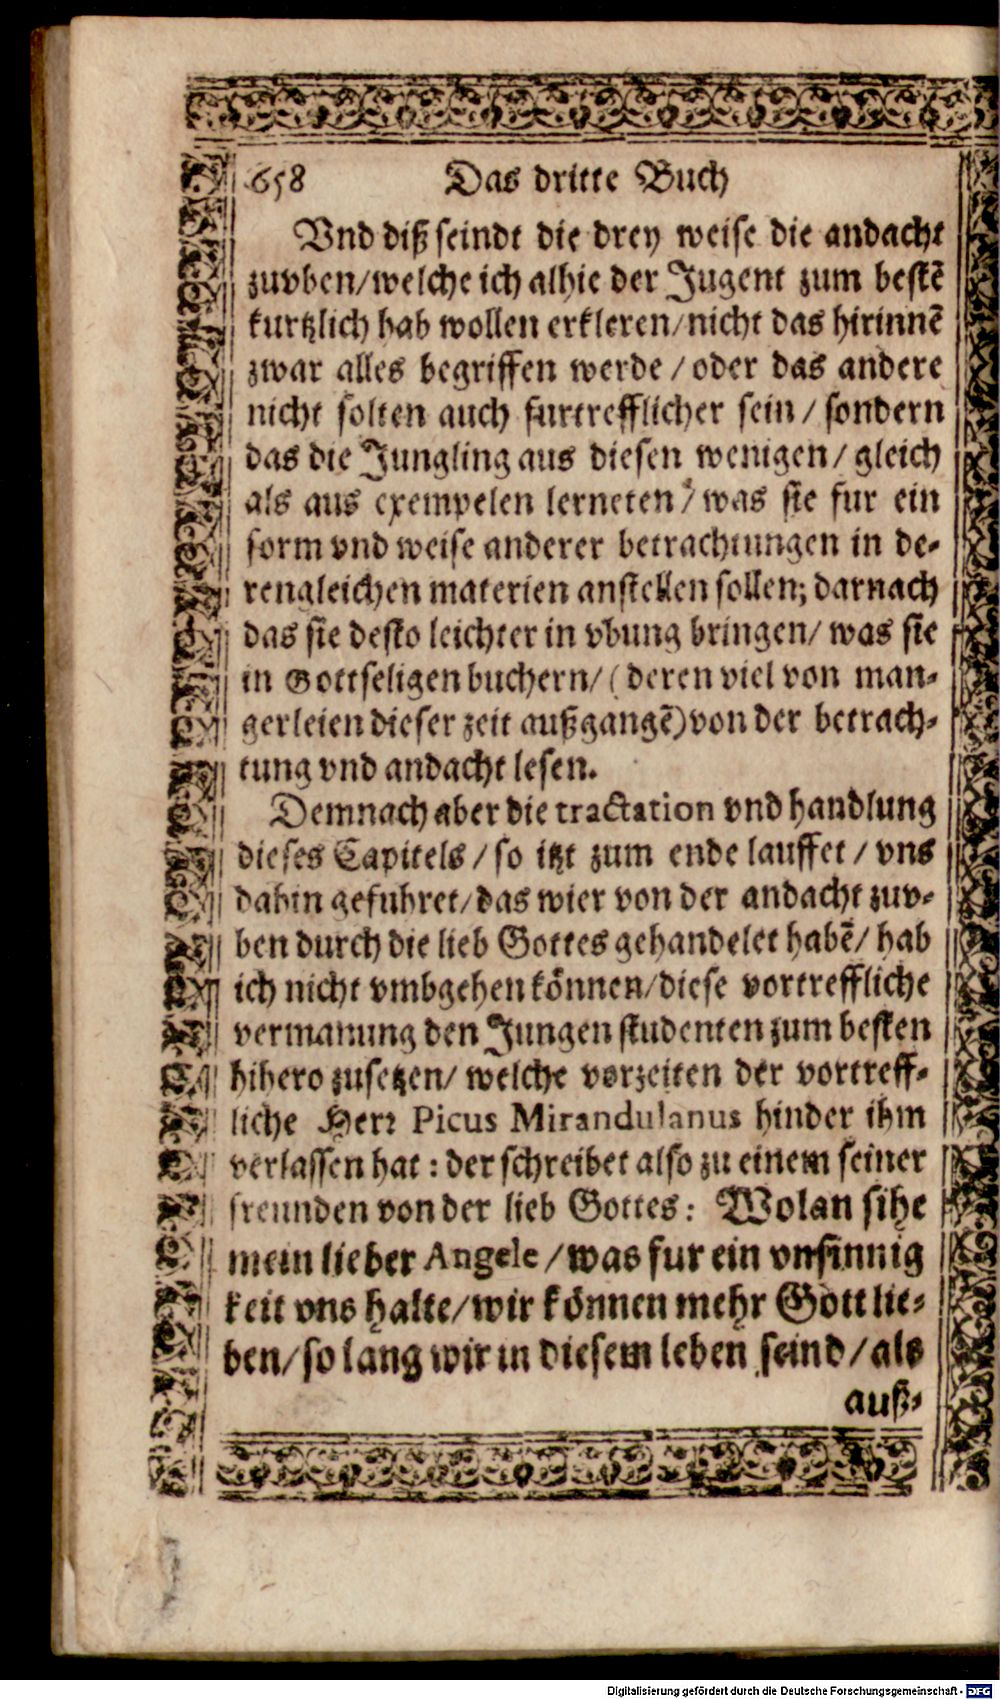 658 Das dritte Buch
Vnd diß seindt die drey weise die andacht
zuvben/welche ich alhie der Jugent zum bestē
kurtzlich hab wollen erkleren/nicht das hirinnē
zwar alles begriffen werde/oder das andere
nicht solten auch furtrefflicher sein/sondern
das die Jungling aus diesen wenigen/gleich
als aus exempelen lerneten/was sie fur ein
form vnd weise anderer betrachtungen in de-
rengleichen materien anstellen sollen; darnach
das sie desto leichter in vbung bringen/was sie
in Gottseligen buchern/(deren viel von man-
gerleien dieser zeit außgangē)von der betrach-
tung vnd andacht lesen.
Demnach aber die tractation vnd handlung
dieses Capitels/so itzt zum ende lauffet/vns
dahin gefuhret/das wier von der andacht zuv-
ben durch die lieb Gottes gehandelet habē/hab
ich nicht vmbgehen können/diese vortreffliche
vermanung den Jungen studenten zum besten
hihero zusetzen/welche vorzeiten der vortreff-
liche Herr Picus Mirandulanus hinder ihm
verlassen hat: der schreibet also zu einem seiner
freunden von der lieb Gottes: Wolan sihe
mein lieber Angele/was fur ein vnsinnig
keit vns halte/wir können mehr Gott lie-
ben/so lang wir in diesem leben seind/als
auß-
Digitalisierung gefördert durch die Deutsche Forschungsgemeinschaft - DFG